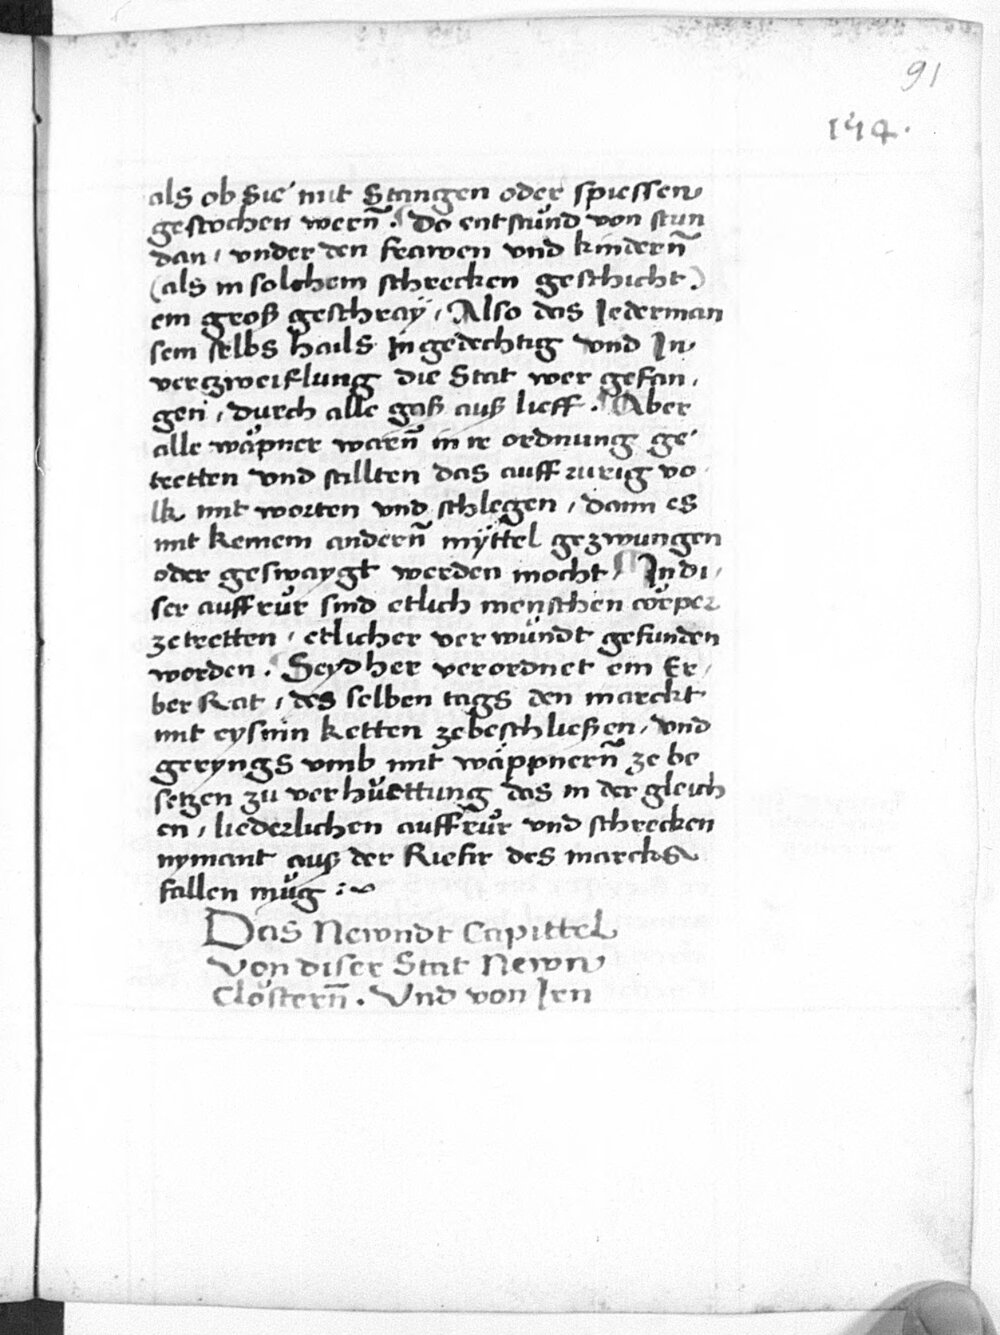 91
174.
als ob Sie mit Stangen oder spiessen
gestochen wern̄. Do entstůnd von stun
dan, vnder den frawen vnd kindern̄
(als in solchem schrecken geschicht)
ein groß geschraÿ, Also das Iederman
sein selbs hails Ingedechtig vnd In
verzweiflung die Stat wer gefan,
gen, durch alle gaß auß lieff. Aber
alle wåpner warn̄ in ir ordnung ge
tretten vnd stillten das auffrurig vo
lk mit worten vnd schlegen, dann es
mit keinem andern̄ mÿttel gezwungen
oder geswaygt werden mocht, In di,
ser auffrůr sind etlich menschen cörper
zetretten, etlicher verwündt gefunden
worden. Seydher verordnet ein Er,
ber Rat, des selben tags den marckt
mit eysnin ketten zebeschließen, vnd
geryngs vmb mit wåppnern̄ ze be
setzen zu verhůettung das in der gleich
en, liederlichen auffrůr vnd schrecken
nymant auß der Riefir des marcks
fallen můg :~
Das Newndt Capittel
Von diser Stat Newn
Clöstern̄. Vnd von Iren